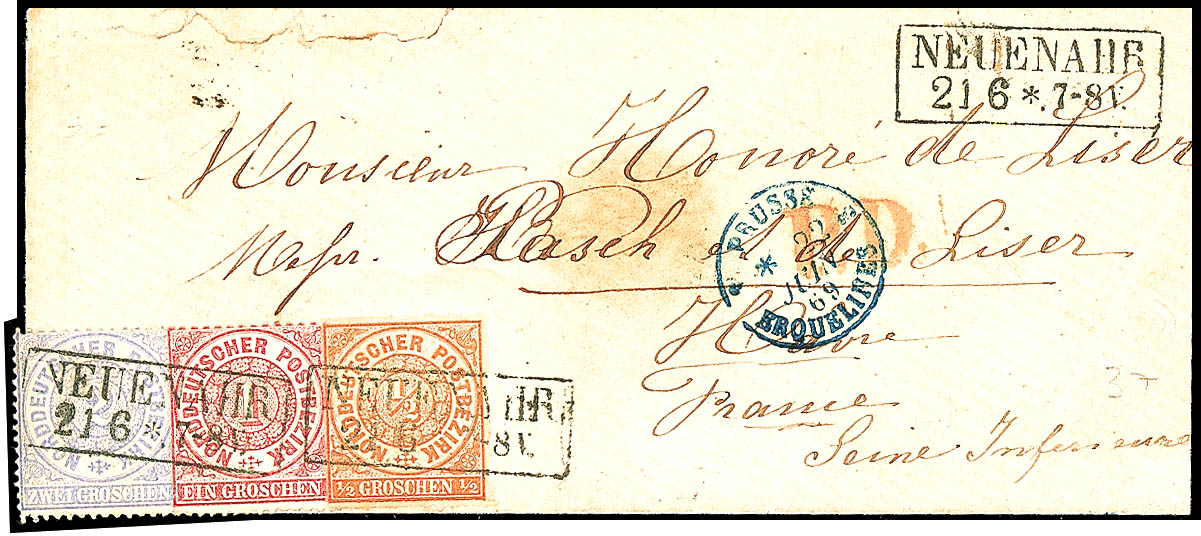 NEUENAHR
21 6 *. 7-8V.
Monsieur Honoré de Liser
Hasch et de Liser
P.D.
PRUSSE
22
JUIN
69
ERQUELINES
Havre
France
Seine Inferieure
NORDDEUTSCHER POSTBEZIRK
2
ZWEI GROSCHEN
NORDDEUTSCHER POSTBEZIRK
1
EIN GROSCHEN
NORDDEUTSCHER POSTBEZIRK
1/2
1/2 GROSCHEN 1/2
NEUENAHR
21 6 *. 7-8V.
NEUENAHR
21 6 7-8V.